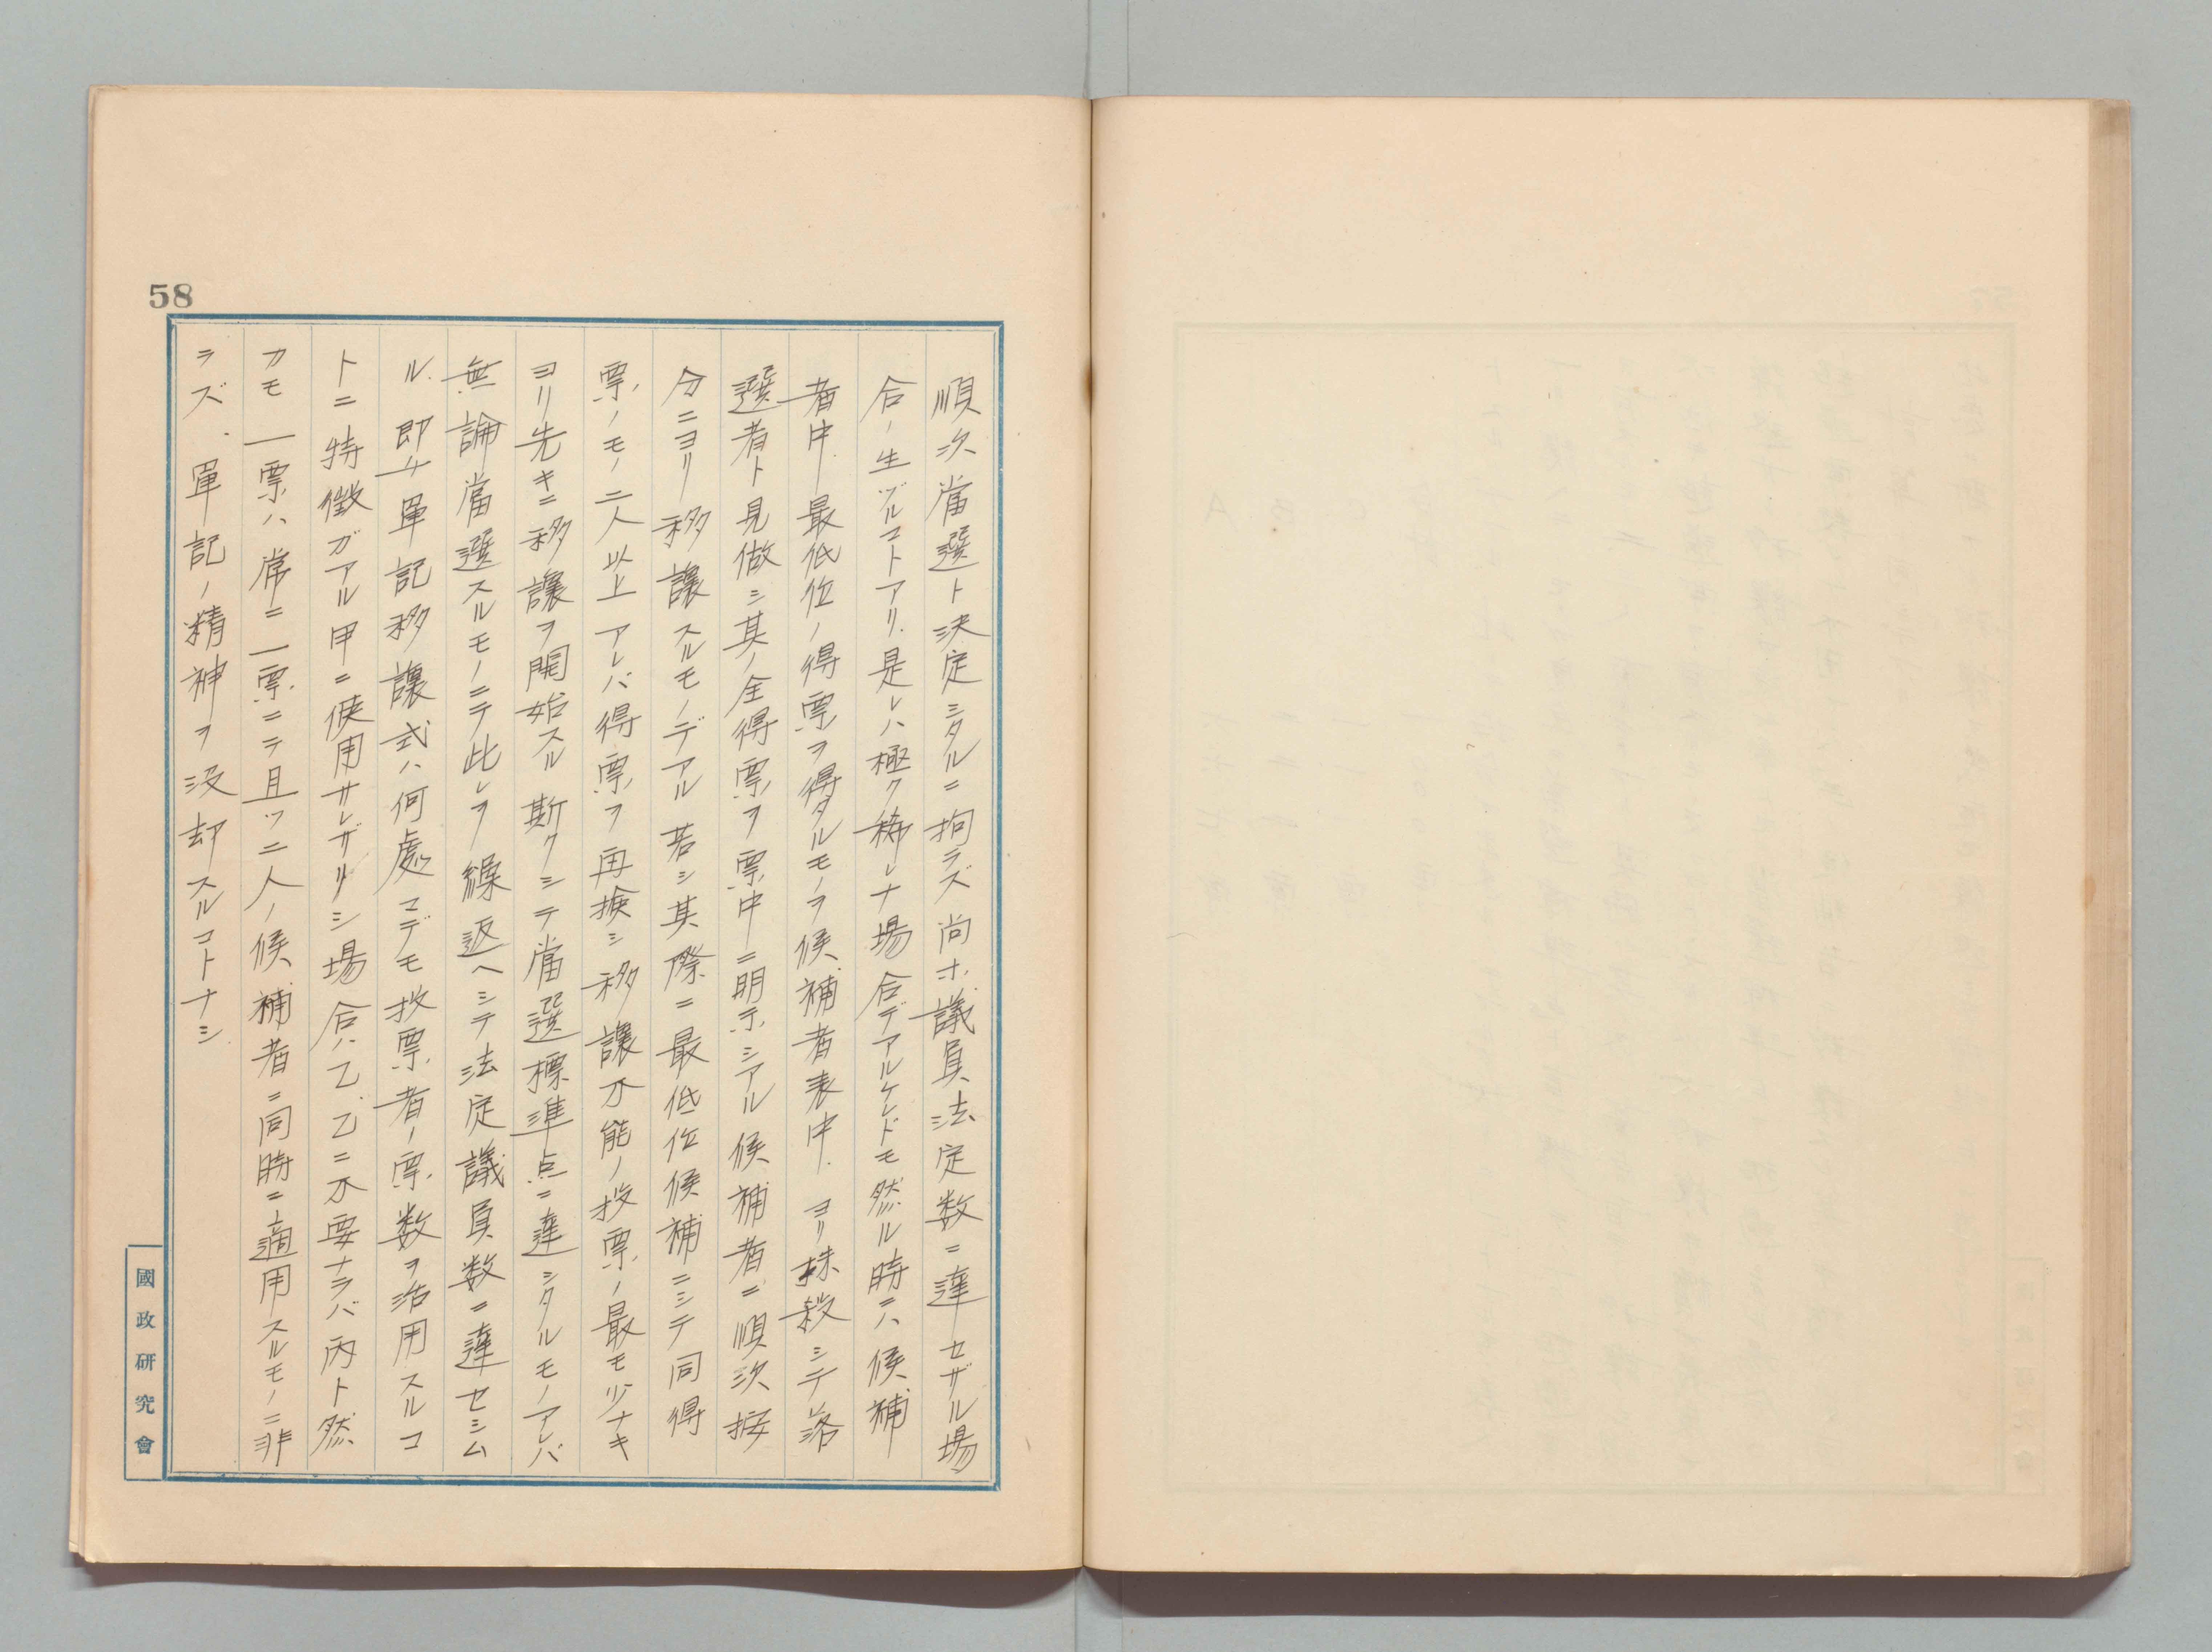 58
順次當選ト決定シタルニ拘ラズ尚ホ議員法定数ニ達セザル場
合ノ生ヅルコトアリ.是レハ極ク稀レナ場合デアルケレドモ然ル時ニハ候補
者中最低位ノ得票ヲ得タルモノヲ候補者表中ヨリ抹殺シテ落
選者ト見做シ其ノ全得票ヲ票中ニ明示シアル候補者ニ順次按
分ニヨリ移譲スルモノデアル若シ其際ニ最低位候補ニシテ同得
票ノモノ二人以上アレバ得票ヲ再検シ移譲不能ノ投票ノ最モ少ナキ
ヨリ先キニ移譲ヲ開始スル斯クシテ當選標準点ニ達シタルモノアレバ
無論當選スルモノニテ此レヲ繰返ヘシテ法定議員数ニ達セシム
ル.即チ單記移譲式ハ何處マデモ投票者ノ票数ヲ活用スルコ
トニ特徴ガアル甲ニ使用サレザリシ場合ハ乙、乙ニ不要ナラバ丙ト然
カモ一票ハ常ニ一票ニテ且ツ二人ノ候補者ニ同時ニ適用スルモノニ非
ラズ.單記ノ精神ヲ没却スルコトナシ
國政研究會